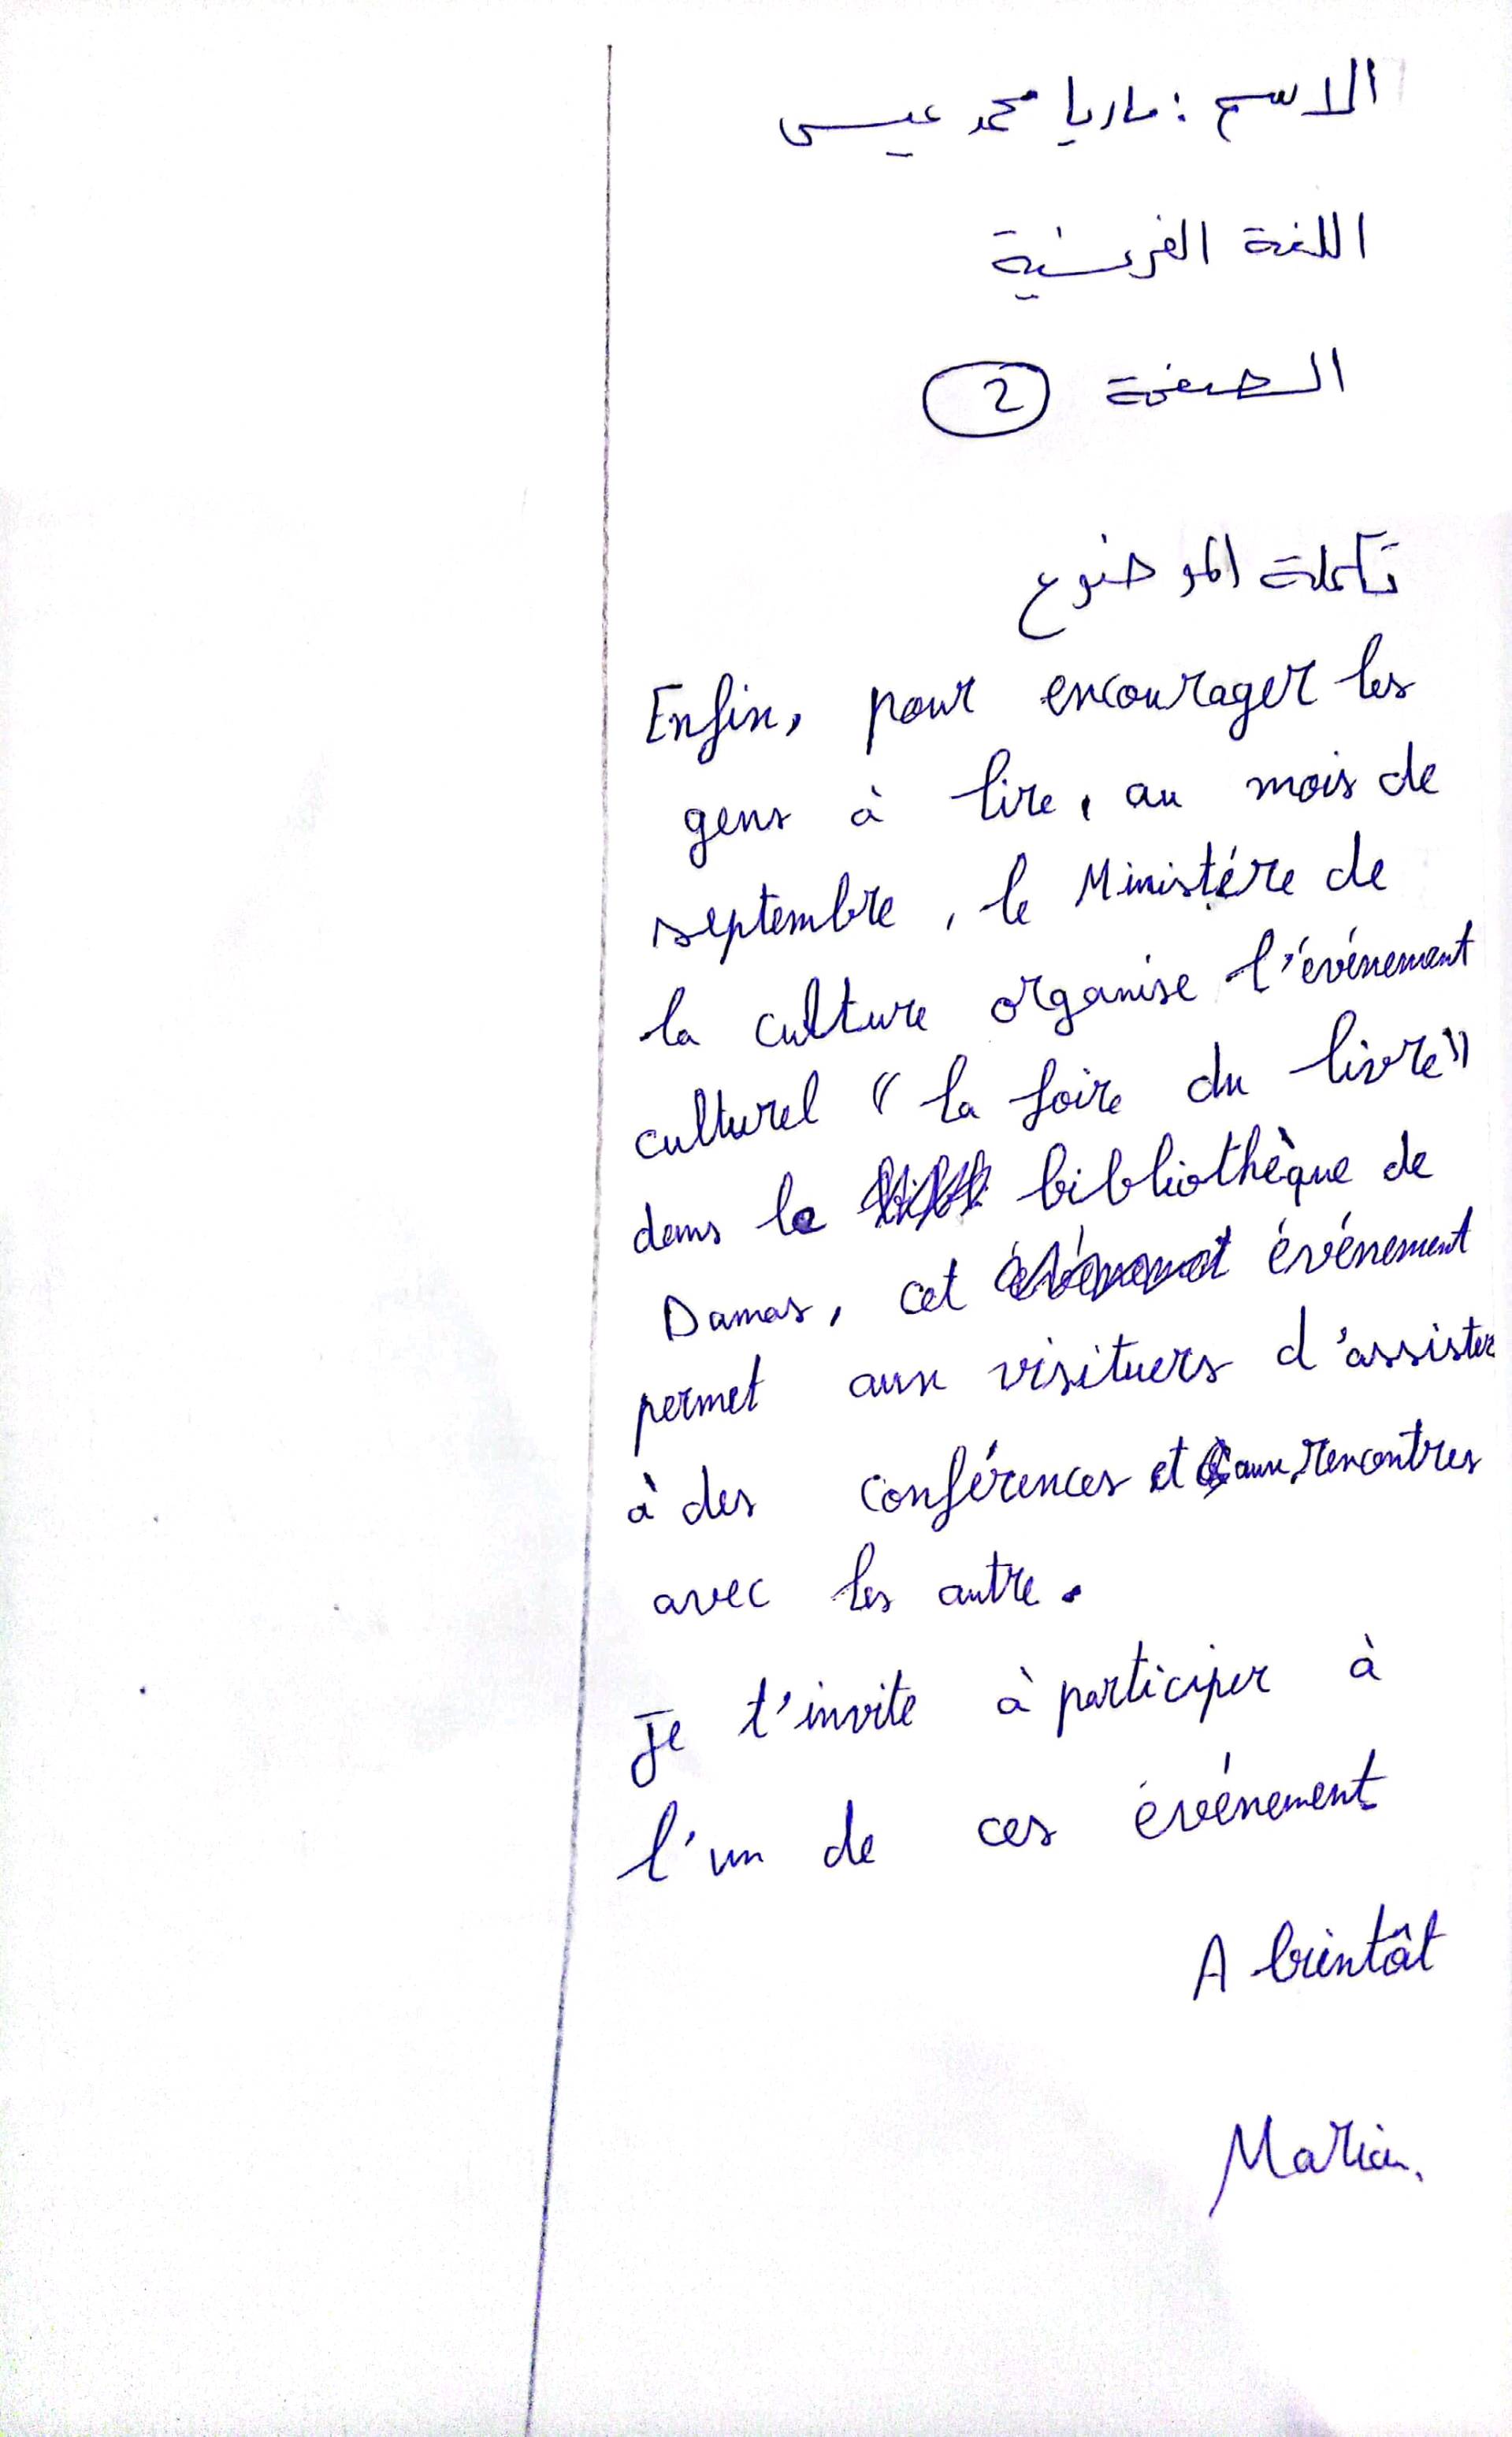 الاسم : ماريا محمد عيسى
اللغة الفرنسية
الصفحة 2
تكملة الموضوع
Enfin, pour encourager les
gens à lire, au mois de
septembre, le Ministére de
la culture organise l'événement
culturel "la foire du livre"
dans le bibliothèque de
Damas, cet événement
permet aux visituers d'assister
à des conférences et aux rencontres
avec les autre.
Je t'invite à participer à
l'un de ces événement
A bientôt
Maria.